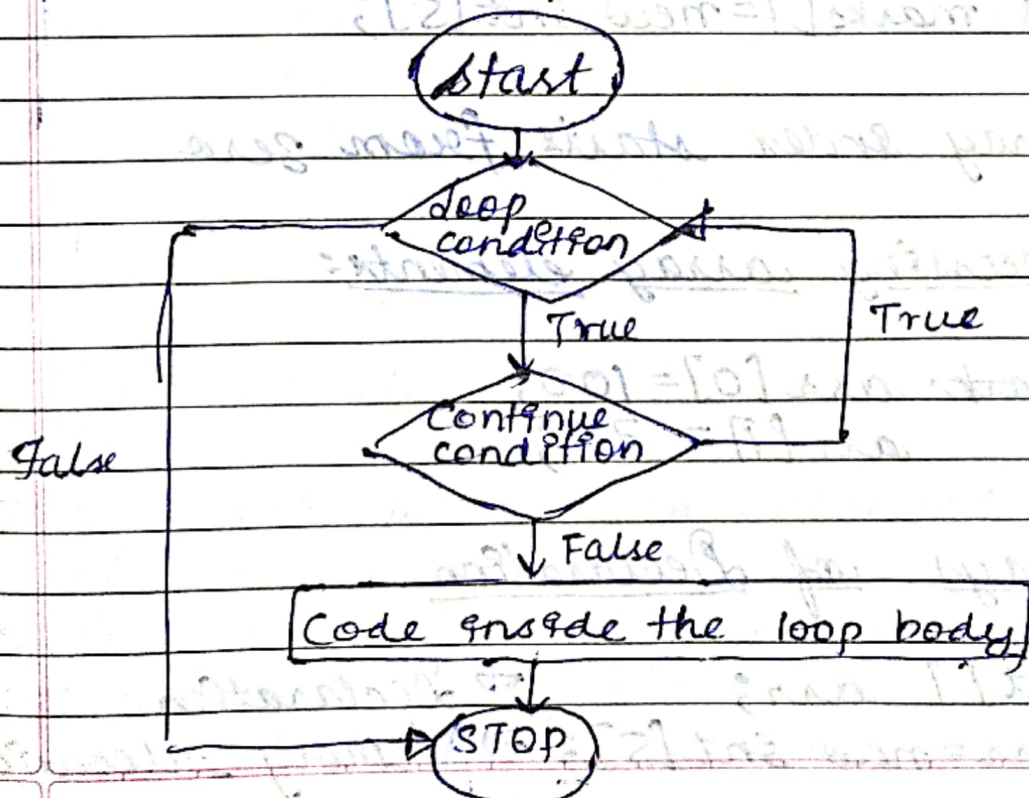 start
Loop
condition
True
True
Continue
condition
False
False
Code inside the loop body
STOP